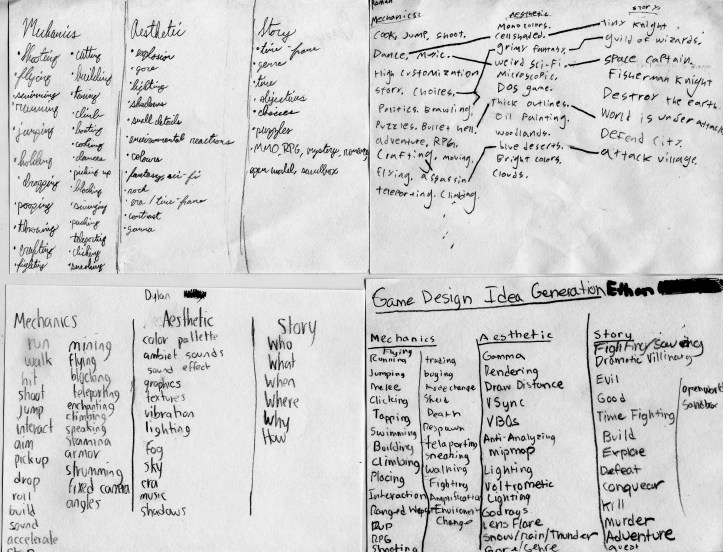 Mechanics
• shooting
• flying
• swimming
• running
• jumping
• holding
• dropping
• pooping
• throwing
• crafting
• fighting
• cutting
• building
• taming
• climb
• cooking
• dances
• picking up
• blocking
• swinging
• pushing
teleporting
• clicking
• sneaking
Aesthetic
• explosion
• gore
• lighting
• shadows
• small details
• environmental reactions
• colours
• fantasy, sci-fi
• rock
• era / time-frame
• contrast
• gamma
Story
• time-frame
• genre
• time
• objectives
• choices
• puzzles
• MMO, RPG, mystery,
open world, sandbox
Mechanics:
Cook, Jump, shoot.
Dance, Music.
High customization
story, Choices.
Politics. Brawling.
Puzzles. Bullet hell.
adventure, RPG.
Crafting, moving.
Flying, assassin
teleporting. Climbing.
Aesthetic
Mono colors.
cellshaded.
grimy fantasy.
weird sci-fi.
Microscopic.
DOS game.
Thick outlines.
Oil Painting.
woodlands.
live deserts.
Bright colors.
Clouds.
Story
Tiny Knight
guild of wizards.
space captain.
Fisherman Knight
Destroy the earth
World is under attack
Defend City.
attack village.
Dylan
Mechanics
run
walk
hit
shoot
jump
interact
aim
pickup
drop
roll
build
sound
accelerate
mining
flying
blocking
teleporting
enchanting
climbing
speaking
stamina
armor
strumming
fixed camera
angles
Aesthetic
color pallette
ambiet sounds
sound effect
graphics
textures
vibration
lighting
fog
sky
era
music
shadows
Story
Who
What
When
Where
Why
How
Game Design Idea Generation Ethan
Mechanics
Flying
Running
Jumping
Melee
Clicking
Tapping
Swimming
Building
Climbing
Placing
Interaction
Ranged Weapon
PVP
RPG
Shooting
trading
buying
mode change
Death
Respawn
teleporting
sneaking
walking
Fighting
Amplification
Environment
Change
Aesthetic
Gamma
Rendering
Draw Distance
VSync
VBOs
Anti-Analyzing
mipmap
Lighting
Voltrometic
Lighting
Godrays
Lens Flare
Snow/Rain/Thunder
Gore/Genre
Story
Fighting
Dromatic Villinary
Evil
Good
Time Fighting
Build
Explore
Defeat
Conquear
Kill
Murder
Adventure
quest
open world
Sandbox